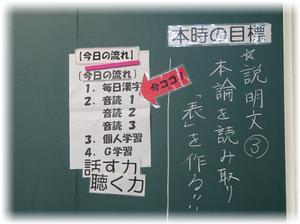 本時の目標
☆説明文③
本論を読み取り
「表」を作る!!
【今日の流れ】
〔今日の流れ〕
1．毎日漢字
今ココ！
2．音読 1
音読 2
音読 3
3．個人学習
4．G学習
話す力
聴く力